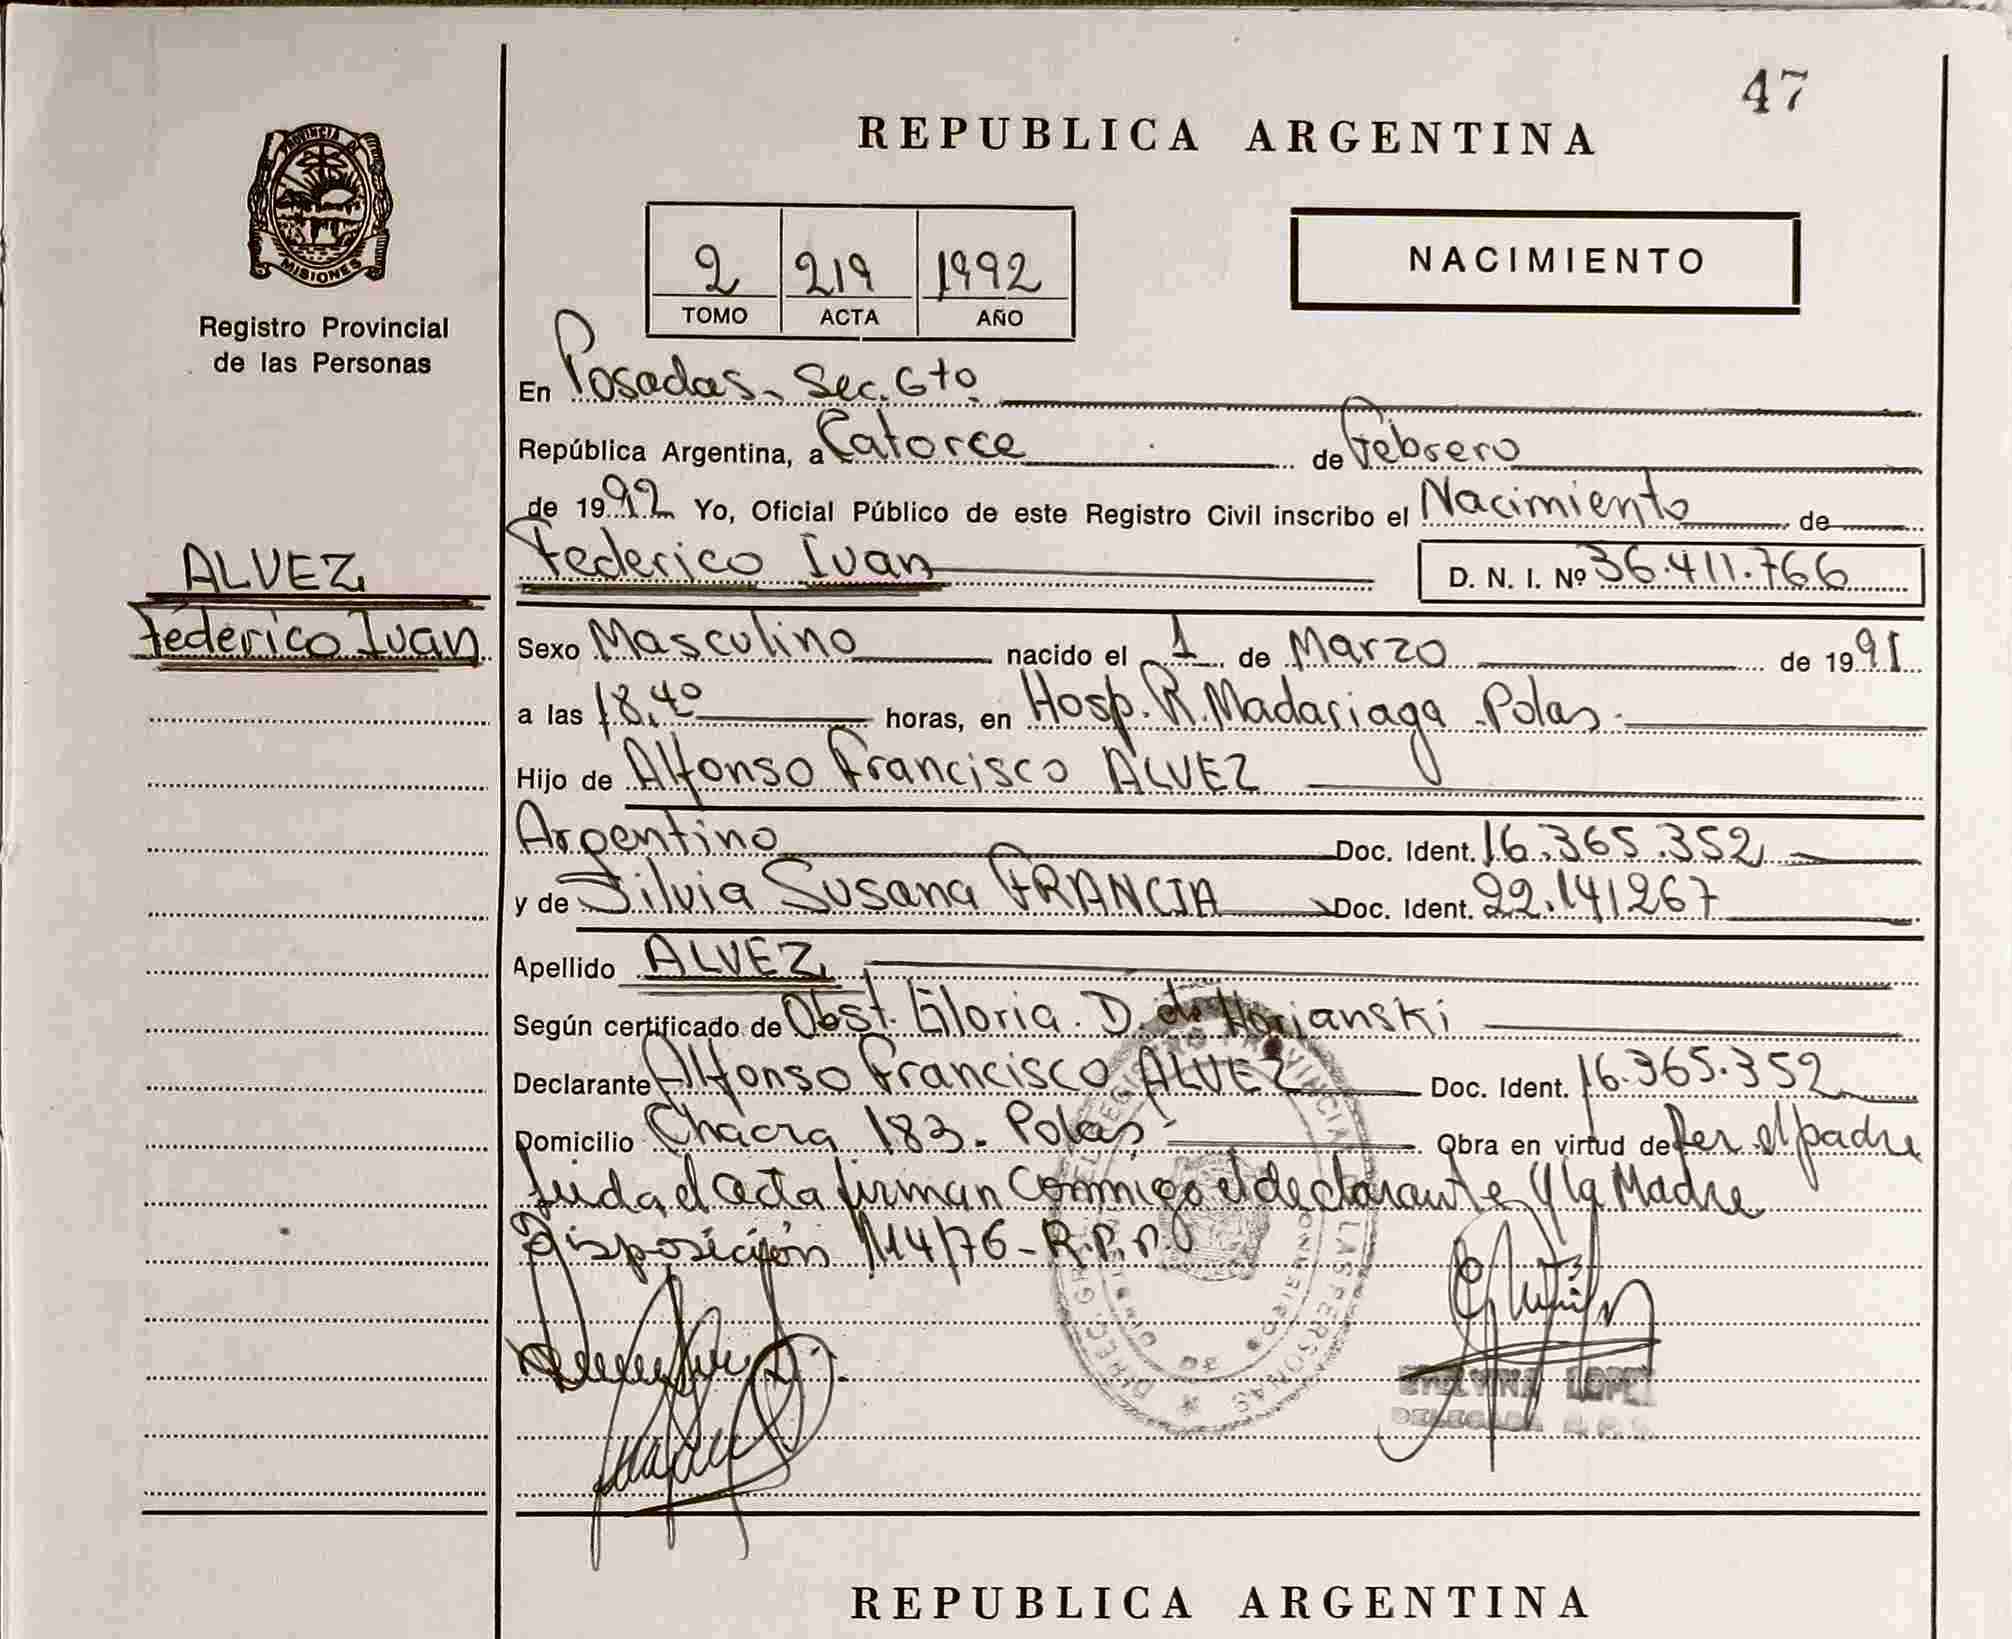 47
REPUBLICA ARGENTINA
PROVINCIA DE
MISIONES
Registro Provincial
de las Personas
NACIMIENTO
2 219 1992
TOMO ACTA AÑO
En Posadas, Sec. 6to.
República Argentina, a Catorce de Febrero
de 1992 Yo, Oficial Público de este Registro Civil inscribo el Nacimiento de
Federico Ivan D. N. I. Nº 36.411.766
ALVEZ
Federico Ivan
Sexo Masculino nacido el 1 de Marzo de 1991
a las 18,40 horas, en Hosp. R. Madariaga - Pdas.
Hijo de Alfonso Francisco ALVEZ
Argentino Doc. Ident. 16.365.352
y de Silvia Susana FRANCIA Doc. Ident. 22.141267
Apellido ALVEZ
Según certificado de Obst. Gloria D. de
Declarante Alfonso Francisco ALVEZ Doc. Ident. 16.365.352
Domicilio Chacra 183 - Pdas. Obra en virtud de Ser el padre
Leída el acta firman Conmigo el declarante y la Madre
Disposición 114/76 - R.P.P.
LOPEZ
DELEGADA
REPUBLICA ARGENTINA